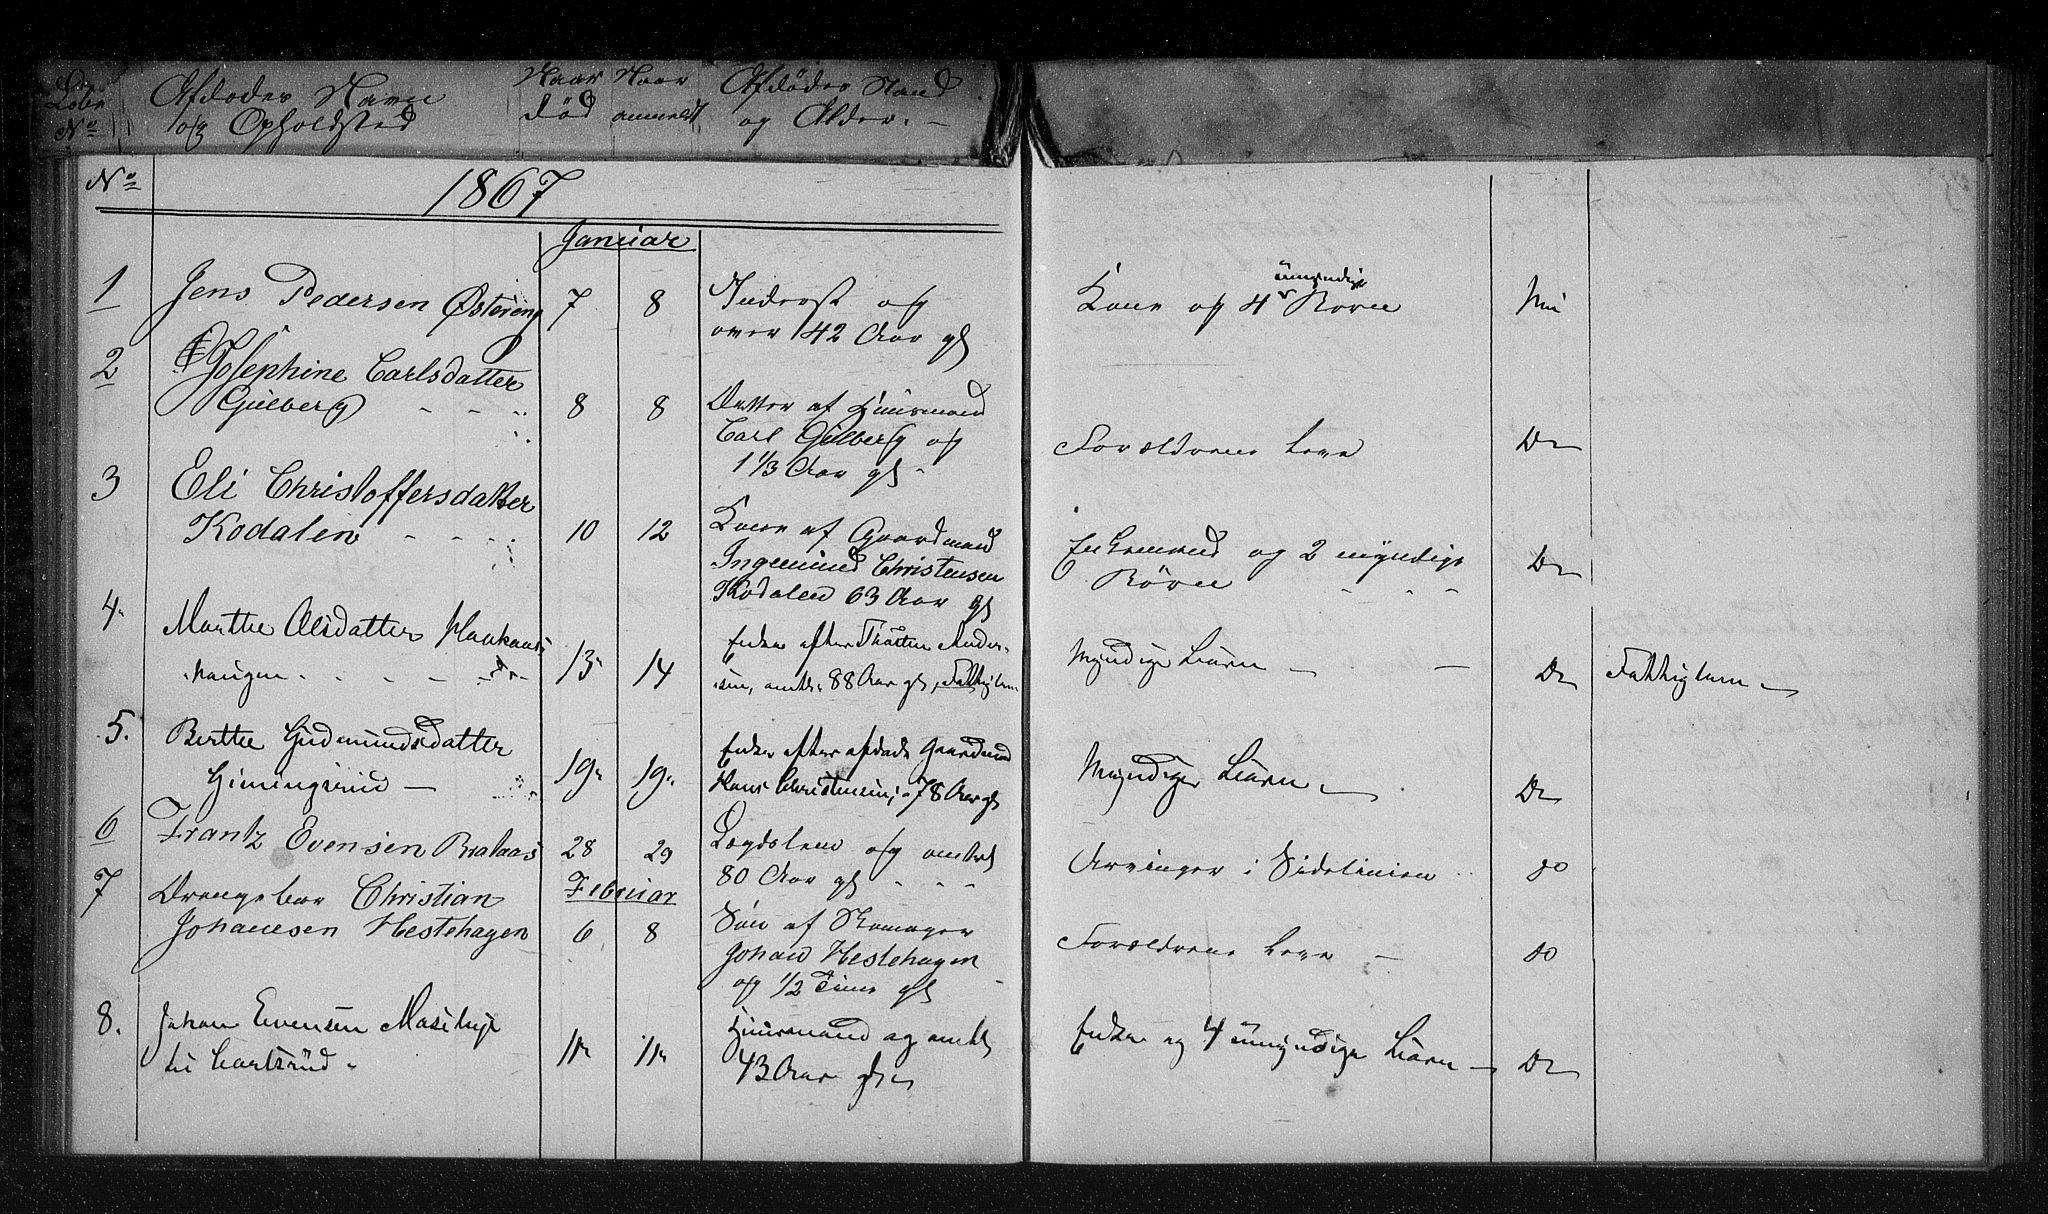 Løbe No
Afdødes Navn og Opholdsted
Naar død
Naar anmeldt
Afdødes Stand og Alder.
No 1867
Januar
1 Jens Pedersen Østereng 7 8 Inderst og over 42 Aar gl Kone og 4 umyndige Børn
2 Josephine Carlsdatter
Gulberg - - - 8 8 Datter af Huusmand
Carl Gulberg og
1 1/3 Aar gl - Forældrene leve Do
3 Eli Christoffersdatter
Kodalen - - - 10 12 Kone af Gaardmand
Ingemund Christensen
Kodalen 63 Aar gl Enkemand og 2 myndige
Børn - - - Do
4. Marthe Olsdatter Haakaas-
haugen - - - 13 14 Enke efter Thosten Ander-
sen, omtr. 88 Aar gl, Fattiglem Myndige Børn - - Do Fattiglem -
5. Berthe Gudmundsdatter
Himingsrud - 19 19 Enke efter afdøde Gaardmand
Hans Christensen, 78 Aar gl Myndige Børn - Do
6 Frantz Evensen Brataas 28 29 Lægdslem og omtrent
80 Aar gl - - - Arvinger i Sidelinien do
Februar
7 Drengebar Christian
Johansen Hestehagen 6 8 Søn af Skomager
Johan Hestehagen
og 1/2 Time gl Forældrene leve - do
8. Johan Evensen
Carlsrud 11 11 Huusmand og omtr
43 Aar gl Enke og 4 umyndige Børn - Do